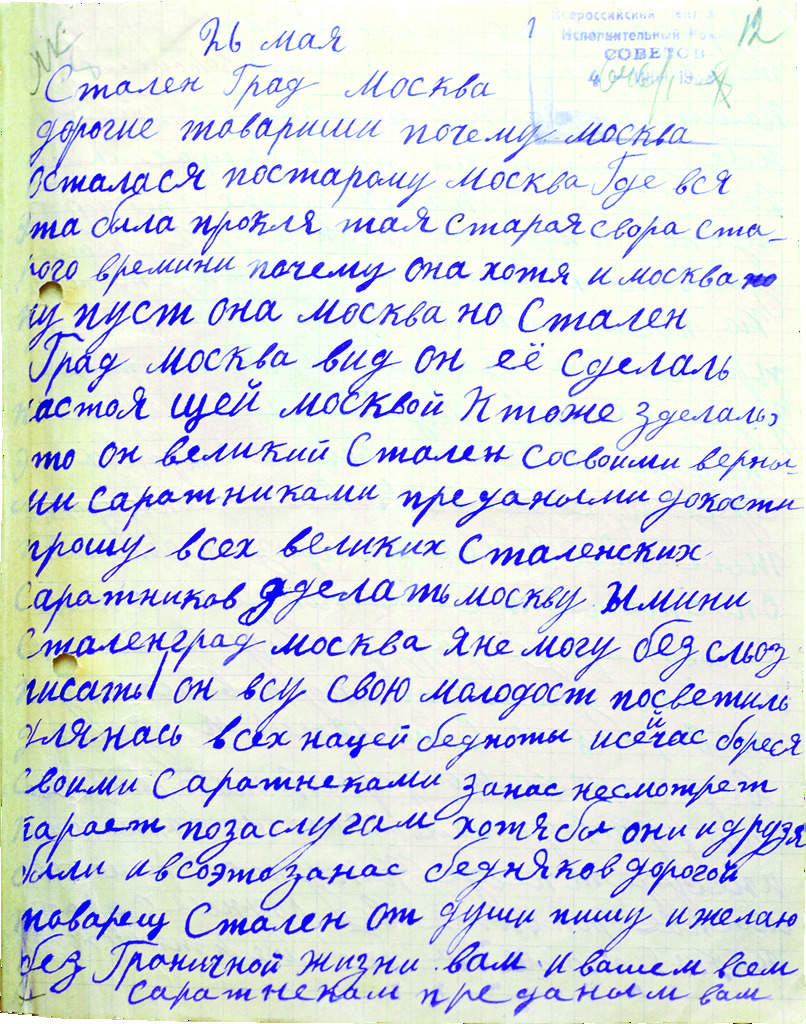 26 мая
12
Всероссийский Цент
Исполнительный Ком
СОВЕТОВ
Стален Град Москва
дорогие товариши почему москва
осталася постарому москва Где вся
та была прокля тая старая свора ста-
рого времини почему она хотя и москва но
ну пуст она москва но Стален
Град москва вид он её сделаль
настоя щей москвой Ктоже зделаль,
то он великий Стален сосвоими верны-
ми саратниками предаными докости
прошу всех великих Сталенских
саратников зделать москву Имини
Сталенград москва яне могу без сльоз
писать он всу свою молодост посветиль
дулянась всех нацей бедноты исейчас бореся
своими Саратнеками занас несмотрет
карает позаслугам хотябы они идрузя
были ивсоэтозанас бедняков дорогой
товарещ Стален от души пишу ижелаю
без Граничной жизни вам ивашем всем
саратнекам преданым вам